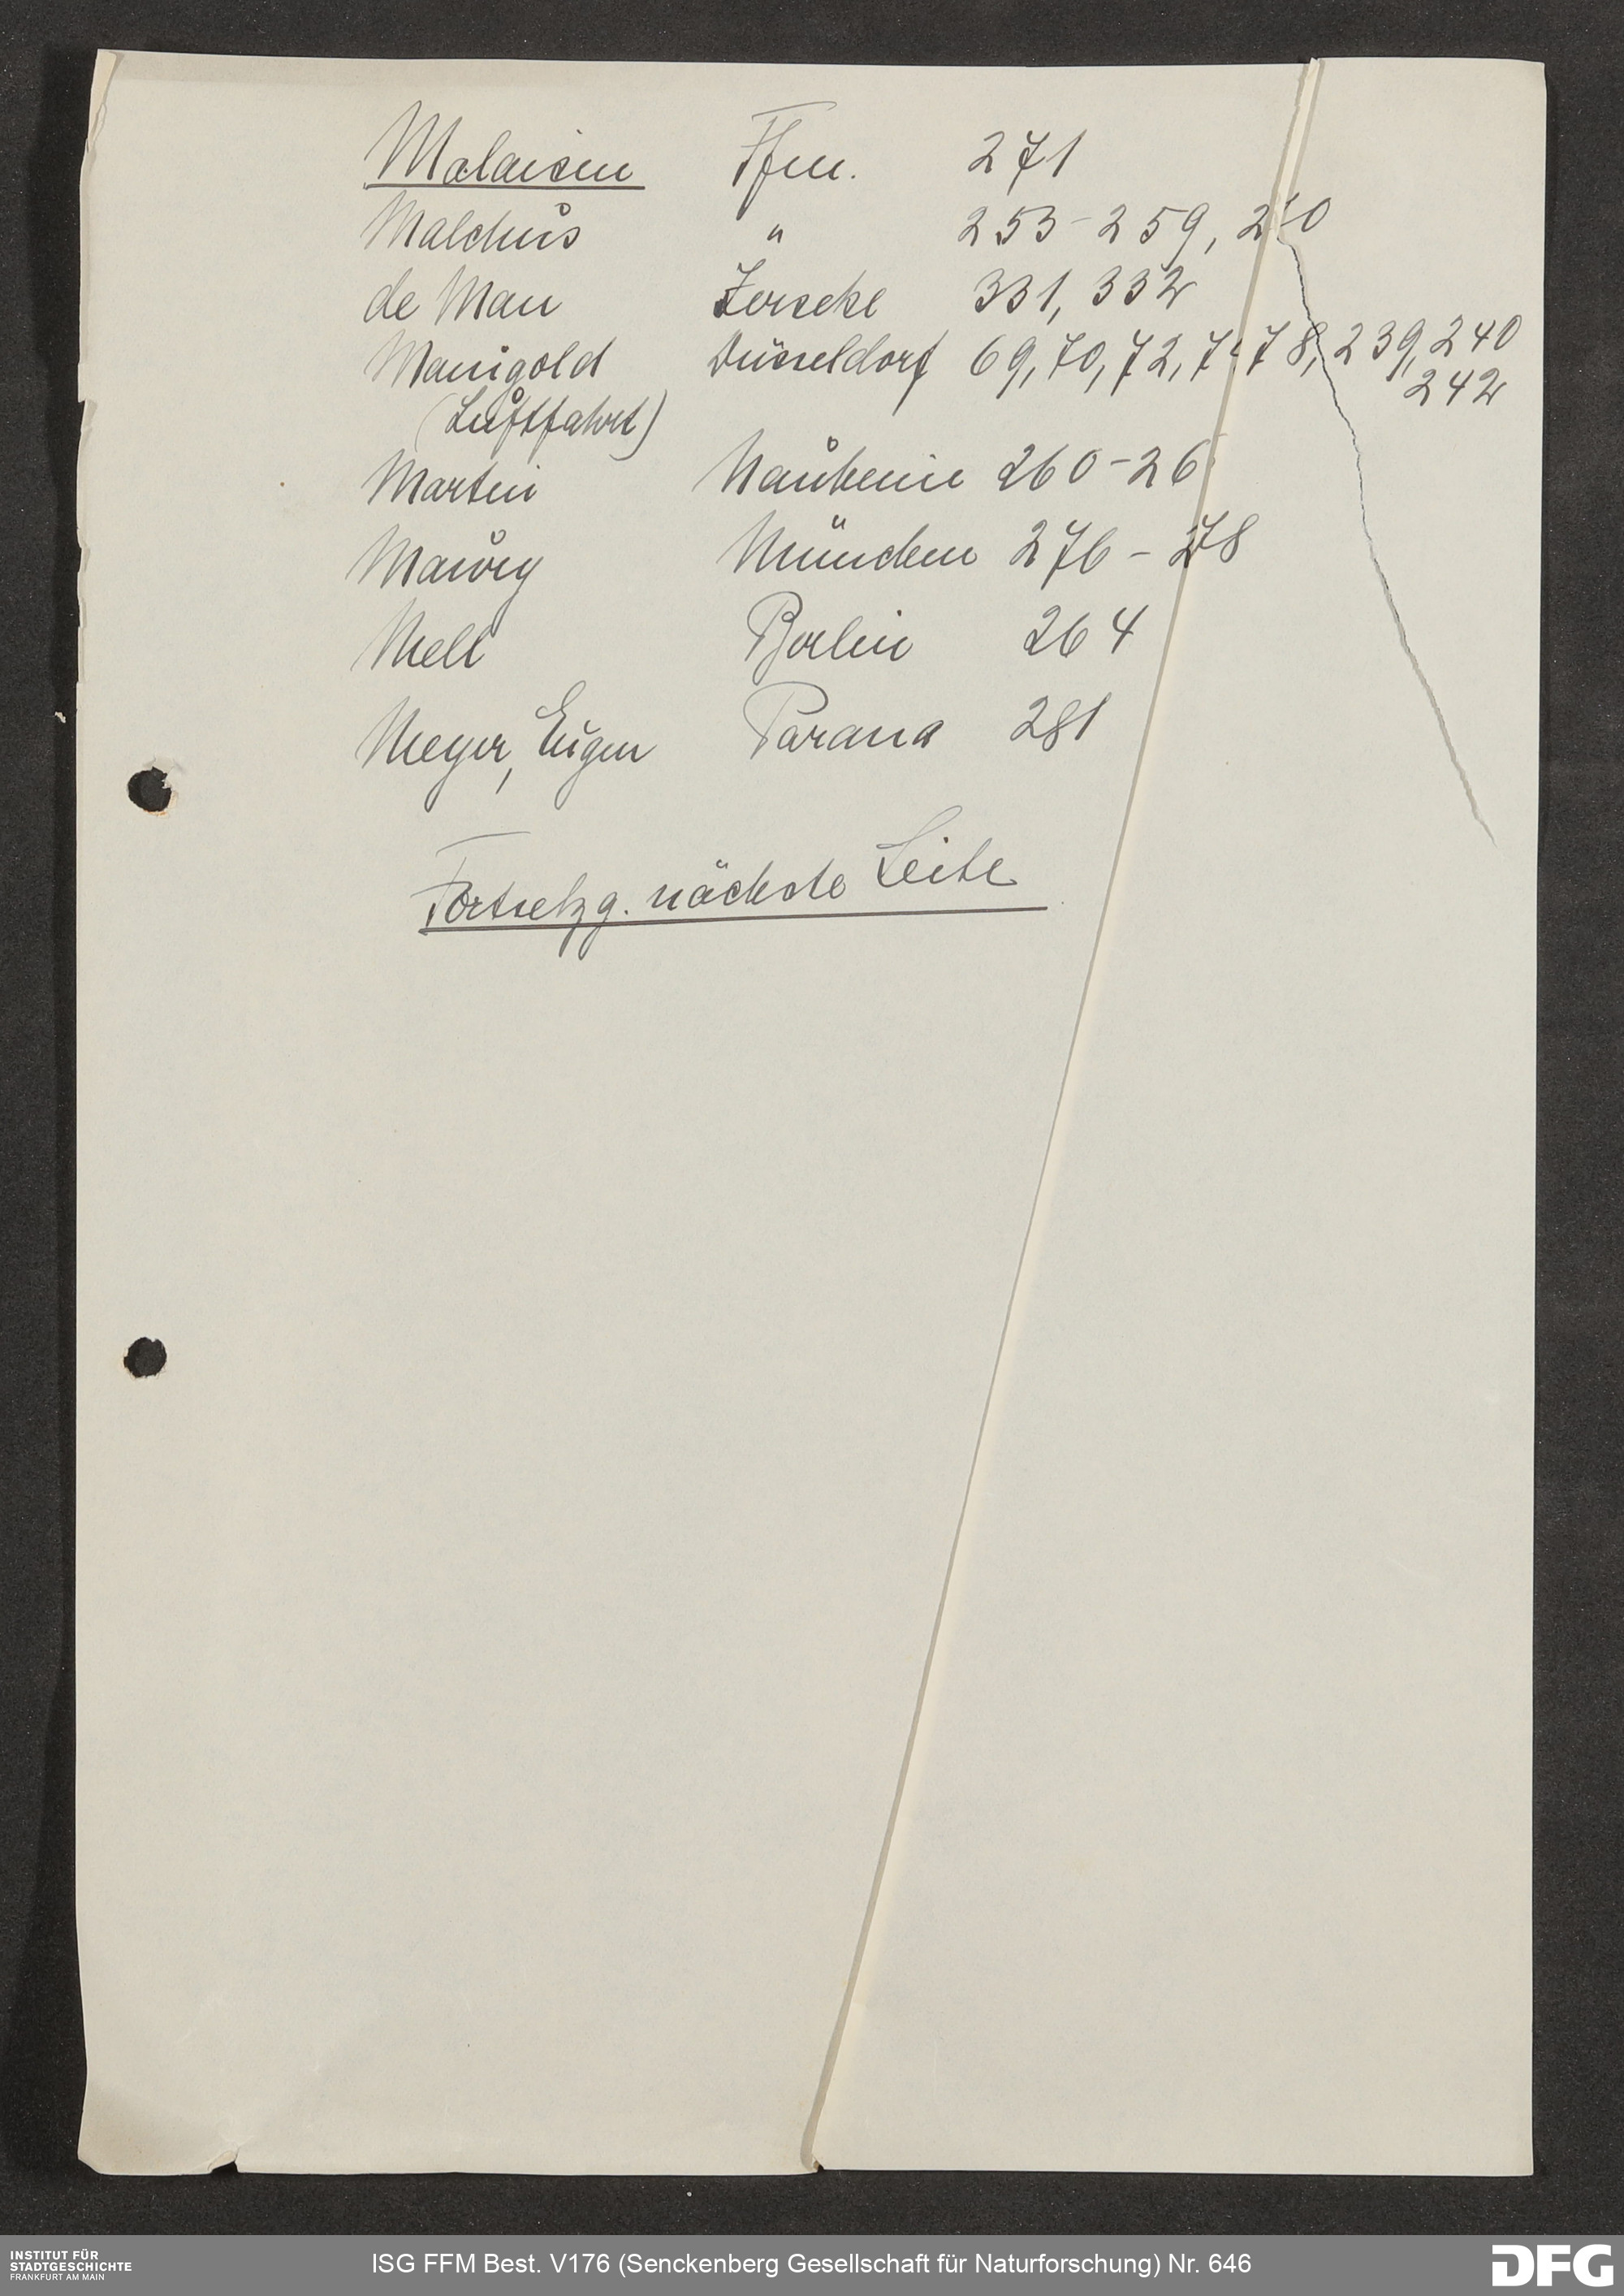 Malaisin Ffm. 271
Malchus " 253-259, 2 0
de Man Jerseke 331, 332
Manigold Düsseldorf 69, 70, 72, 7 78, 239, 240
242
(Luftfahrt)
Martin 260-26
Mawry München 276-278
Mell Berlin 264
Meyer, Eugen Parana 281
Fortsetzg. nächste Seite
INSTITUT FÜR
STADTGESCHICHTE
FRANKFURT AM MAIN
ISG FFM Best. V176 (Senckenberg Gesellschaft für Naturforschung) Nr. 646
DFG